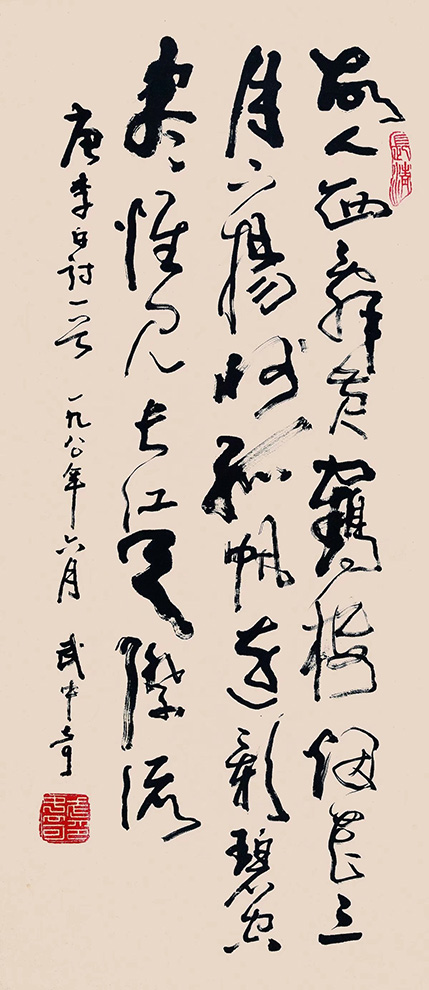 故人西辭黃鶴樓烟花三
月下揚州孤帆遠影碧空
盡惟見長江天際流
唐李白詩一首 一九八〇年六月 武中奇
長清